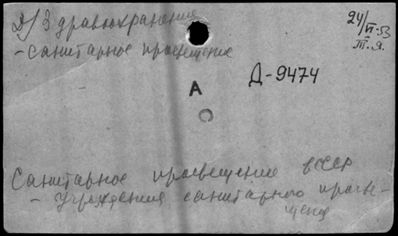 2/ Здравоохранение
24/VI-53
Т.Я.
- санитарное просвещение
Д-9474
А
Санитарное просвещение в СССР
- Учреждения санитарного просве-
щения